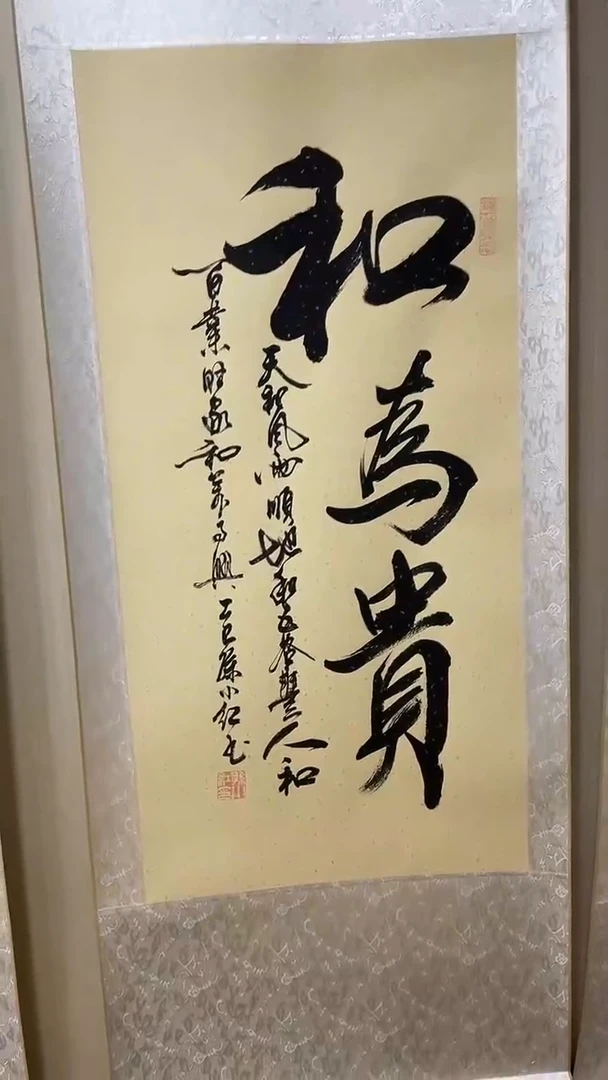 和為貴
天和風雨順地和五谷豐人和
百業旺家和萬事興乙巳孫小红书